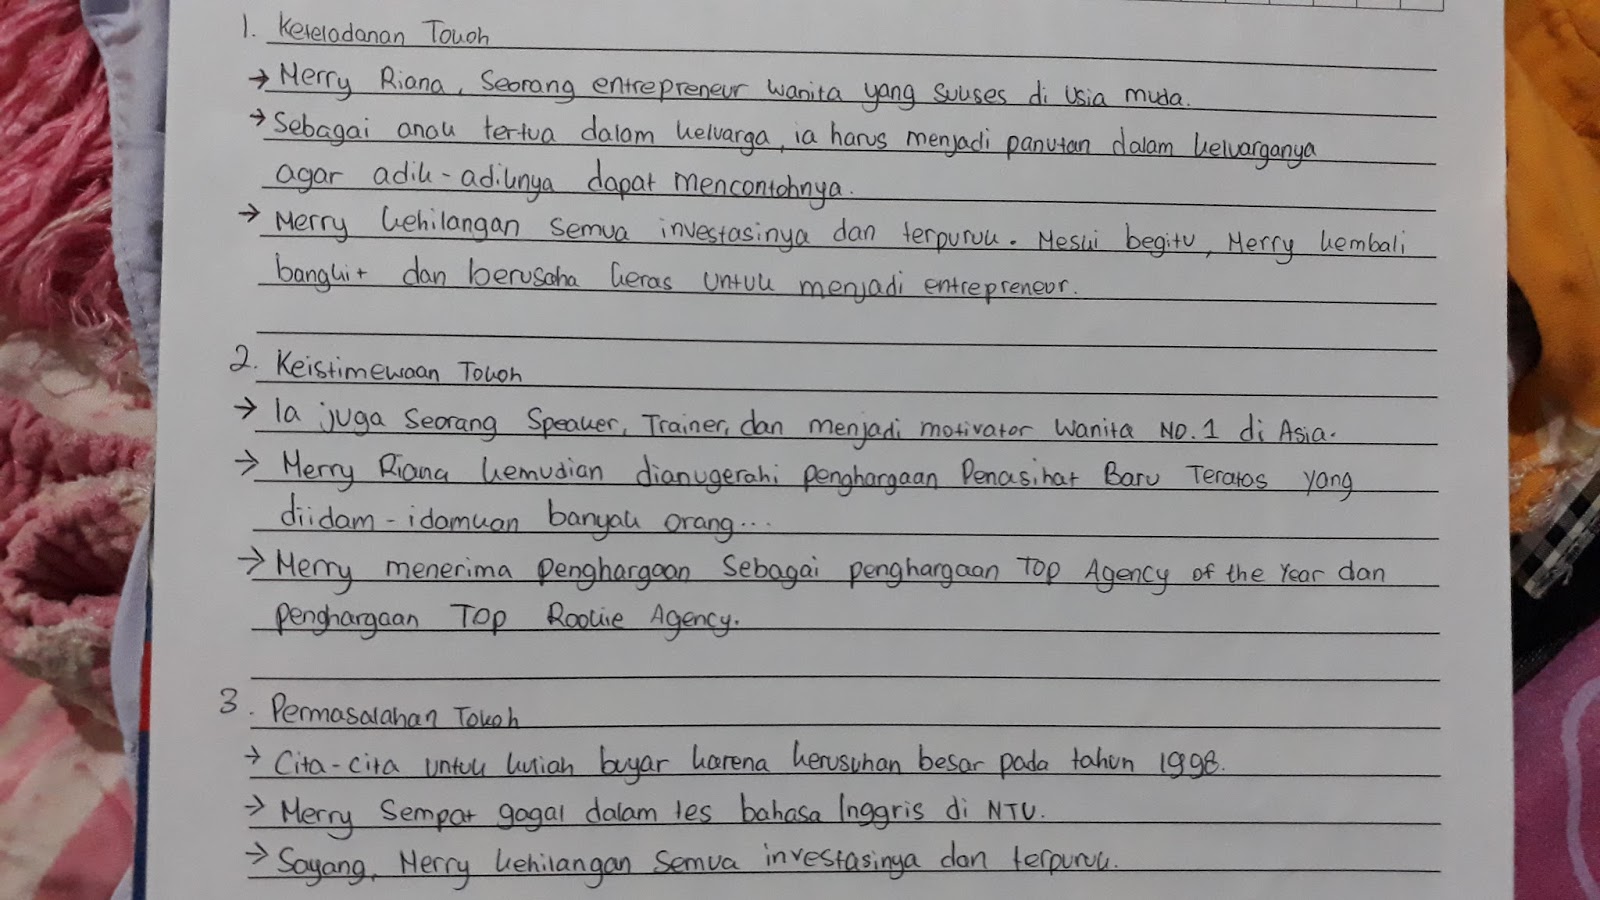 1. Keteladanan Tokoh
→ Merry Riana, Seorang entrepreneur wanita yang sukses di usia muda.
→ Sebagai anak tertua dalam keluarga, ia harus menjadi panutan dalam keluarganya
agar adik-adiknya dapat mencontohnya.
→ Merry kehilangan semua investasinya dan terpuruk. Meski begitu, Merry kembali
bangkit dan berusaha keras untuk menjadi entrepreneur.
2. Keistimewaan Tokoh
→ Ia juga seorang Speaker, Trainer, dan menjadi motivator wanita No.1 di Asia.
→ Merry Riana kemudian dianugerahi penghargaan Penasihat Baru Teratas yang
diidam-idamkan banyak orang...
→ Merry menerima penghargaan sebagai penghargaan Top Agency of the Year dan
penghargaan Top Rookie Agency.
3. Permasalahan Tokoh
→ Cita-cita untuk kuliah buyar karena kerusuhan besar pada tahun 1998.
→ Merry sempat gagal dalam tes bahasa Inggris di NTU.
→ Sayang, Merry kehilangan semua investasinya dan terpuruk.